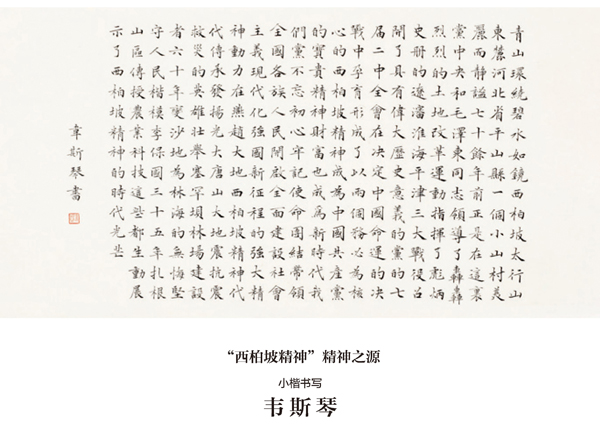 青山環繞碧水如鏡西柏坡太行山
東麓河北省平山縣一個小山村美
麗而静謐七十餘年前正是在這裏
黨中央和毛澤東同志領導了轟轟
烈烈的土地改革運動指揮了彪炳
史冊的遼瀋淮海平津三大戰役召
開了具有偉大歷史意義的黨的七
届二中全會在決定中國命運的決
戰中孕育形成了以兩個務必為核
心的西柏坡精神成為中國共產黨
的寶貴精神財富也成為新時代我
們黨不忘初心牢記使命團結帶領
全國各族人民開啟全面建設社會
主義現代化強國新征程的強大精
神動力在燕趙大地西柏坡精神代
代傳承發揚光大唐山大地震抗震
救災的英雄壯舉塞罕壩林場建設
者六十年變沙地為林海的無悔堅
守人民楷模李保國三十五年扎根
山區傳授農業科技這些都生動展
示了西柏坡精神的時代光芒
韋斯琴書
“西柏坡精神”精神之源
小楷书写
韦斯琴